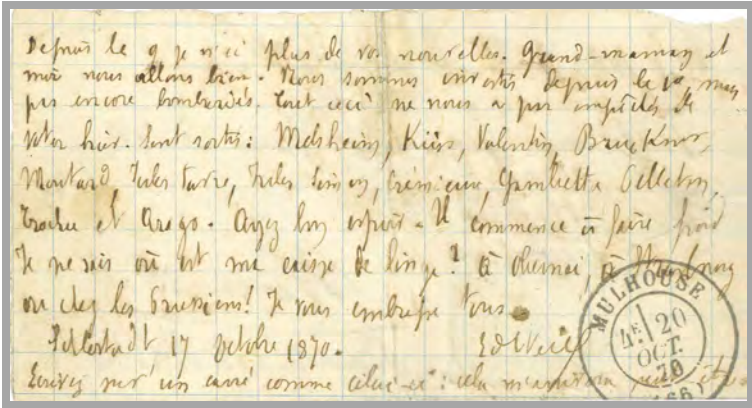 Depuis le 9 je n'ai plus de vos nouvelles. Grand-maman et
moi nous allons bien. Nous sommes investis depuis le mais
pas encore bombardés. Tout ceci ne nous a pas empêchés de
voter hier. Sont sortis: Melsheim, Küss, Valentin, Bruckner,
Moutard, Jules Favre, Jules Simon, Crémieux, Gambetta Pelletan,
Trochu et Arago. Ayez bon espoir. Il commence à faire froid
Je ne sais où est ma caisse de linge? à Obernai, à Strasbourg
ou chez les Prussiens! Je vous embrasse tous
Schlestadt 17 octobre 1870. Ed Weill
Ecrivez sur un carré comme celui-ci: cela m'arrivera peut être
MULHOUSE
4E 20
OCT.
70
(66)